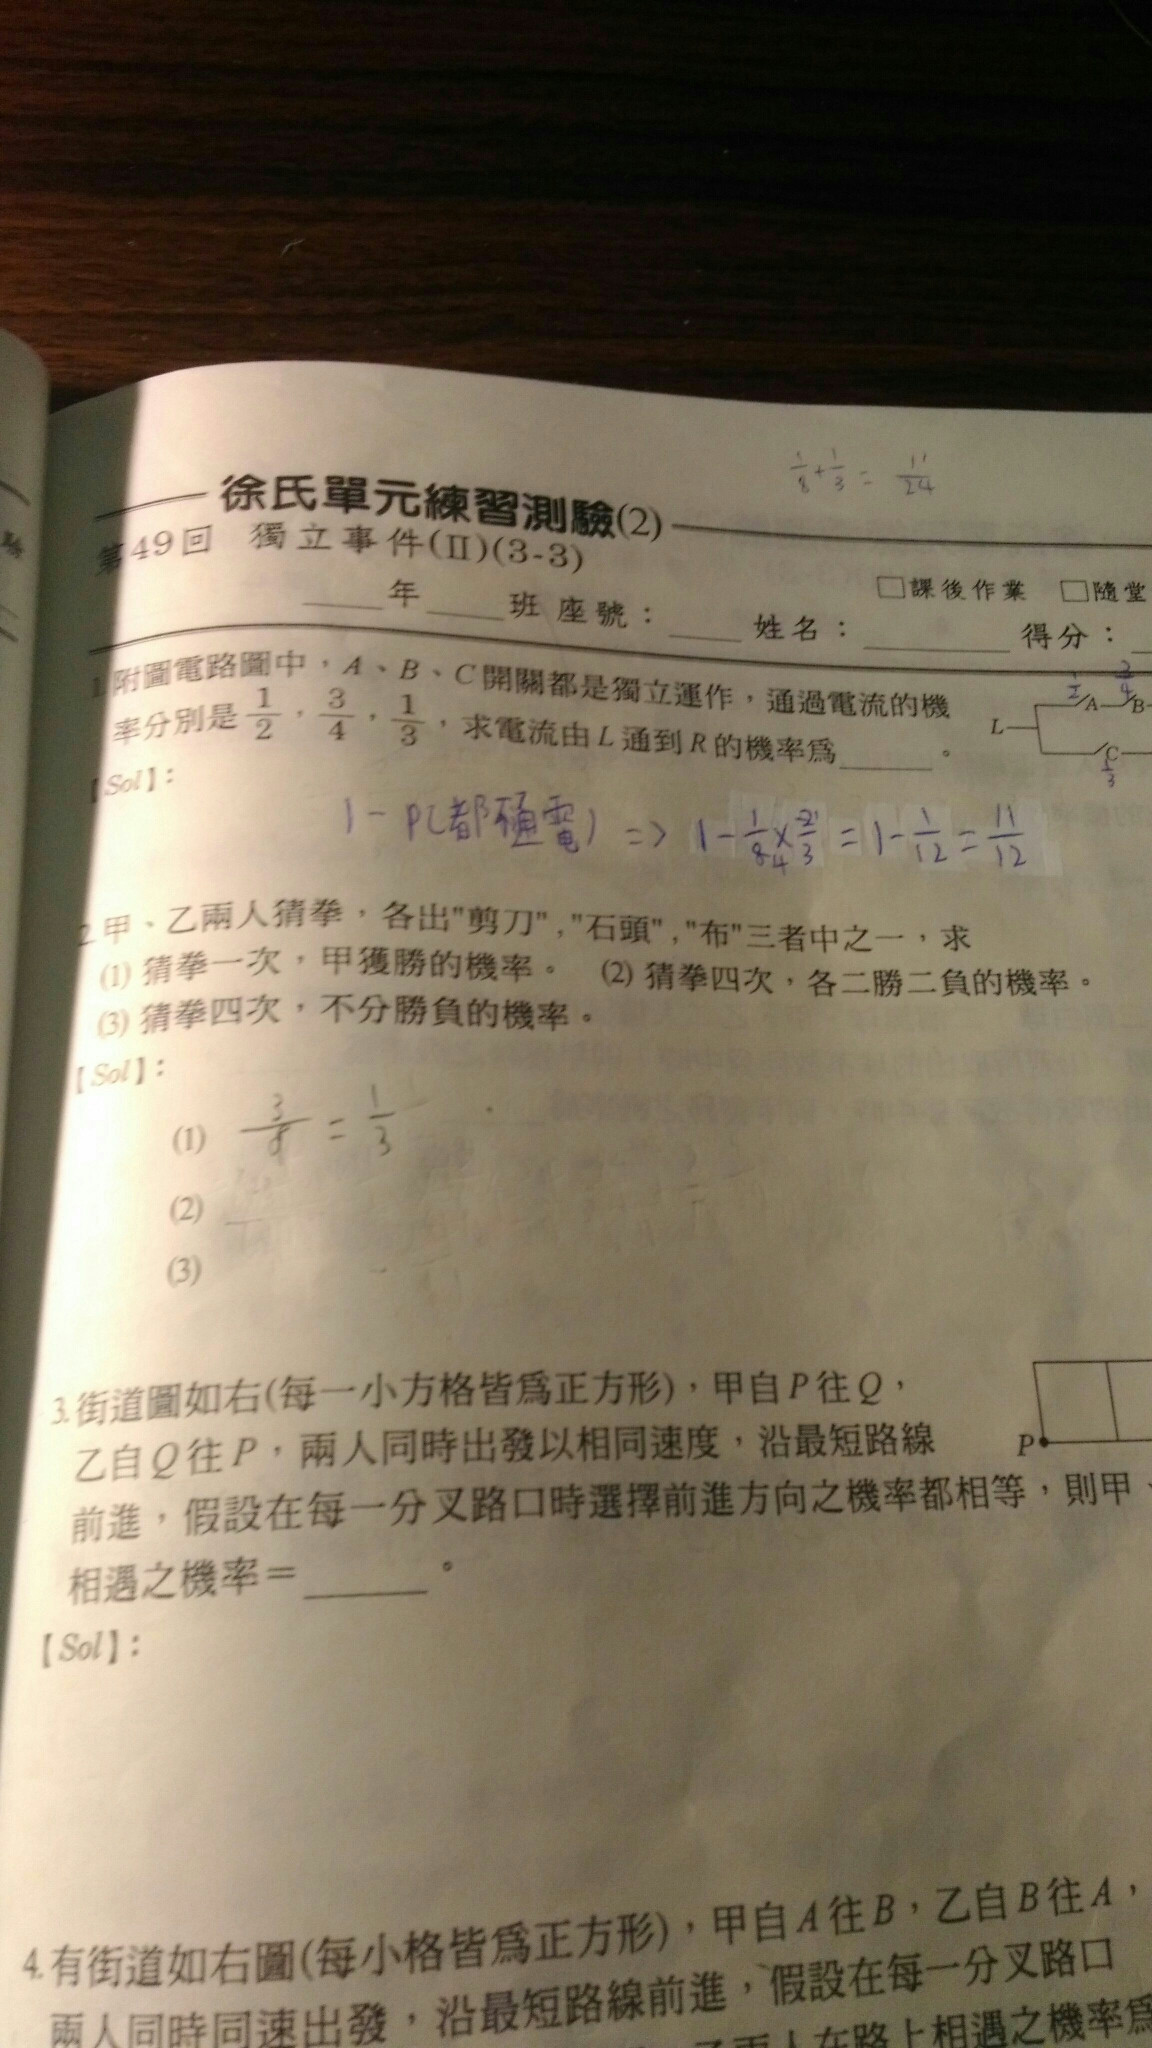 1/8 + 1/3 = 11/24
徐氏單元練習測驗(2)
第49回 獨立事件(II)(3-3)
□課後作業 □隨堂
____年____班 座號：____ 姓名：________ 得分：
1. 附圖電路圖中，A、B、C開關都是獨立運作，通過電流的機
率分別是 1/2，3/4，1/3，求電流由L通到R的機率為______。
1/2 3/4
A B
L
C
1/3
【Sol】：
1-P(都通電) => 1-1/84×2/3=1-1/12=11/12
2. 甲、乙兩人猜拳，各出"剪刀"，"石頭"，"布"三者中之一，求
(1) 猜拳一次，甲獲勝的機率。 (2) 猜拳四次，各二勝二負的機率。
(3) 猜拳四次，不分勝負的機率。
【Sol】：
(1) = 1/3
(2)
(3)
3. 街道圖如右(每一小方格皆為正方形)，甲自P往Q，
乙自Q往P，兩人同時出發以相同速度，沿最短路線
P
前進，假設在每一分叉路口時選擇前進方向之機率都相等，則甲、
相遇之機率＝______。
【Sol】：
4. 有街道如右圖(每小格皆為正方形)，甲自A往B，乙自B往A，
兩人同時同速出發，沿最短路線前進，假設在每一分叉路口
兩人在路上相遇之機率為